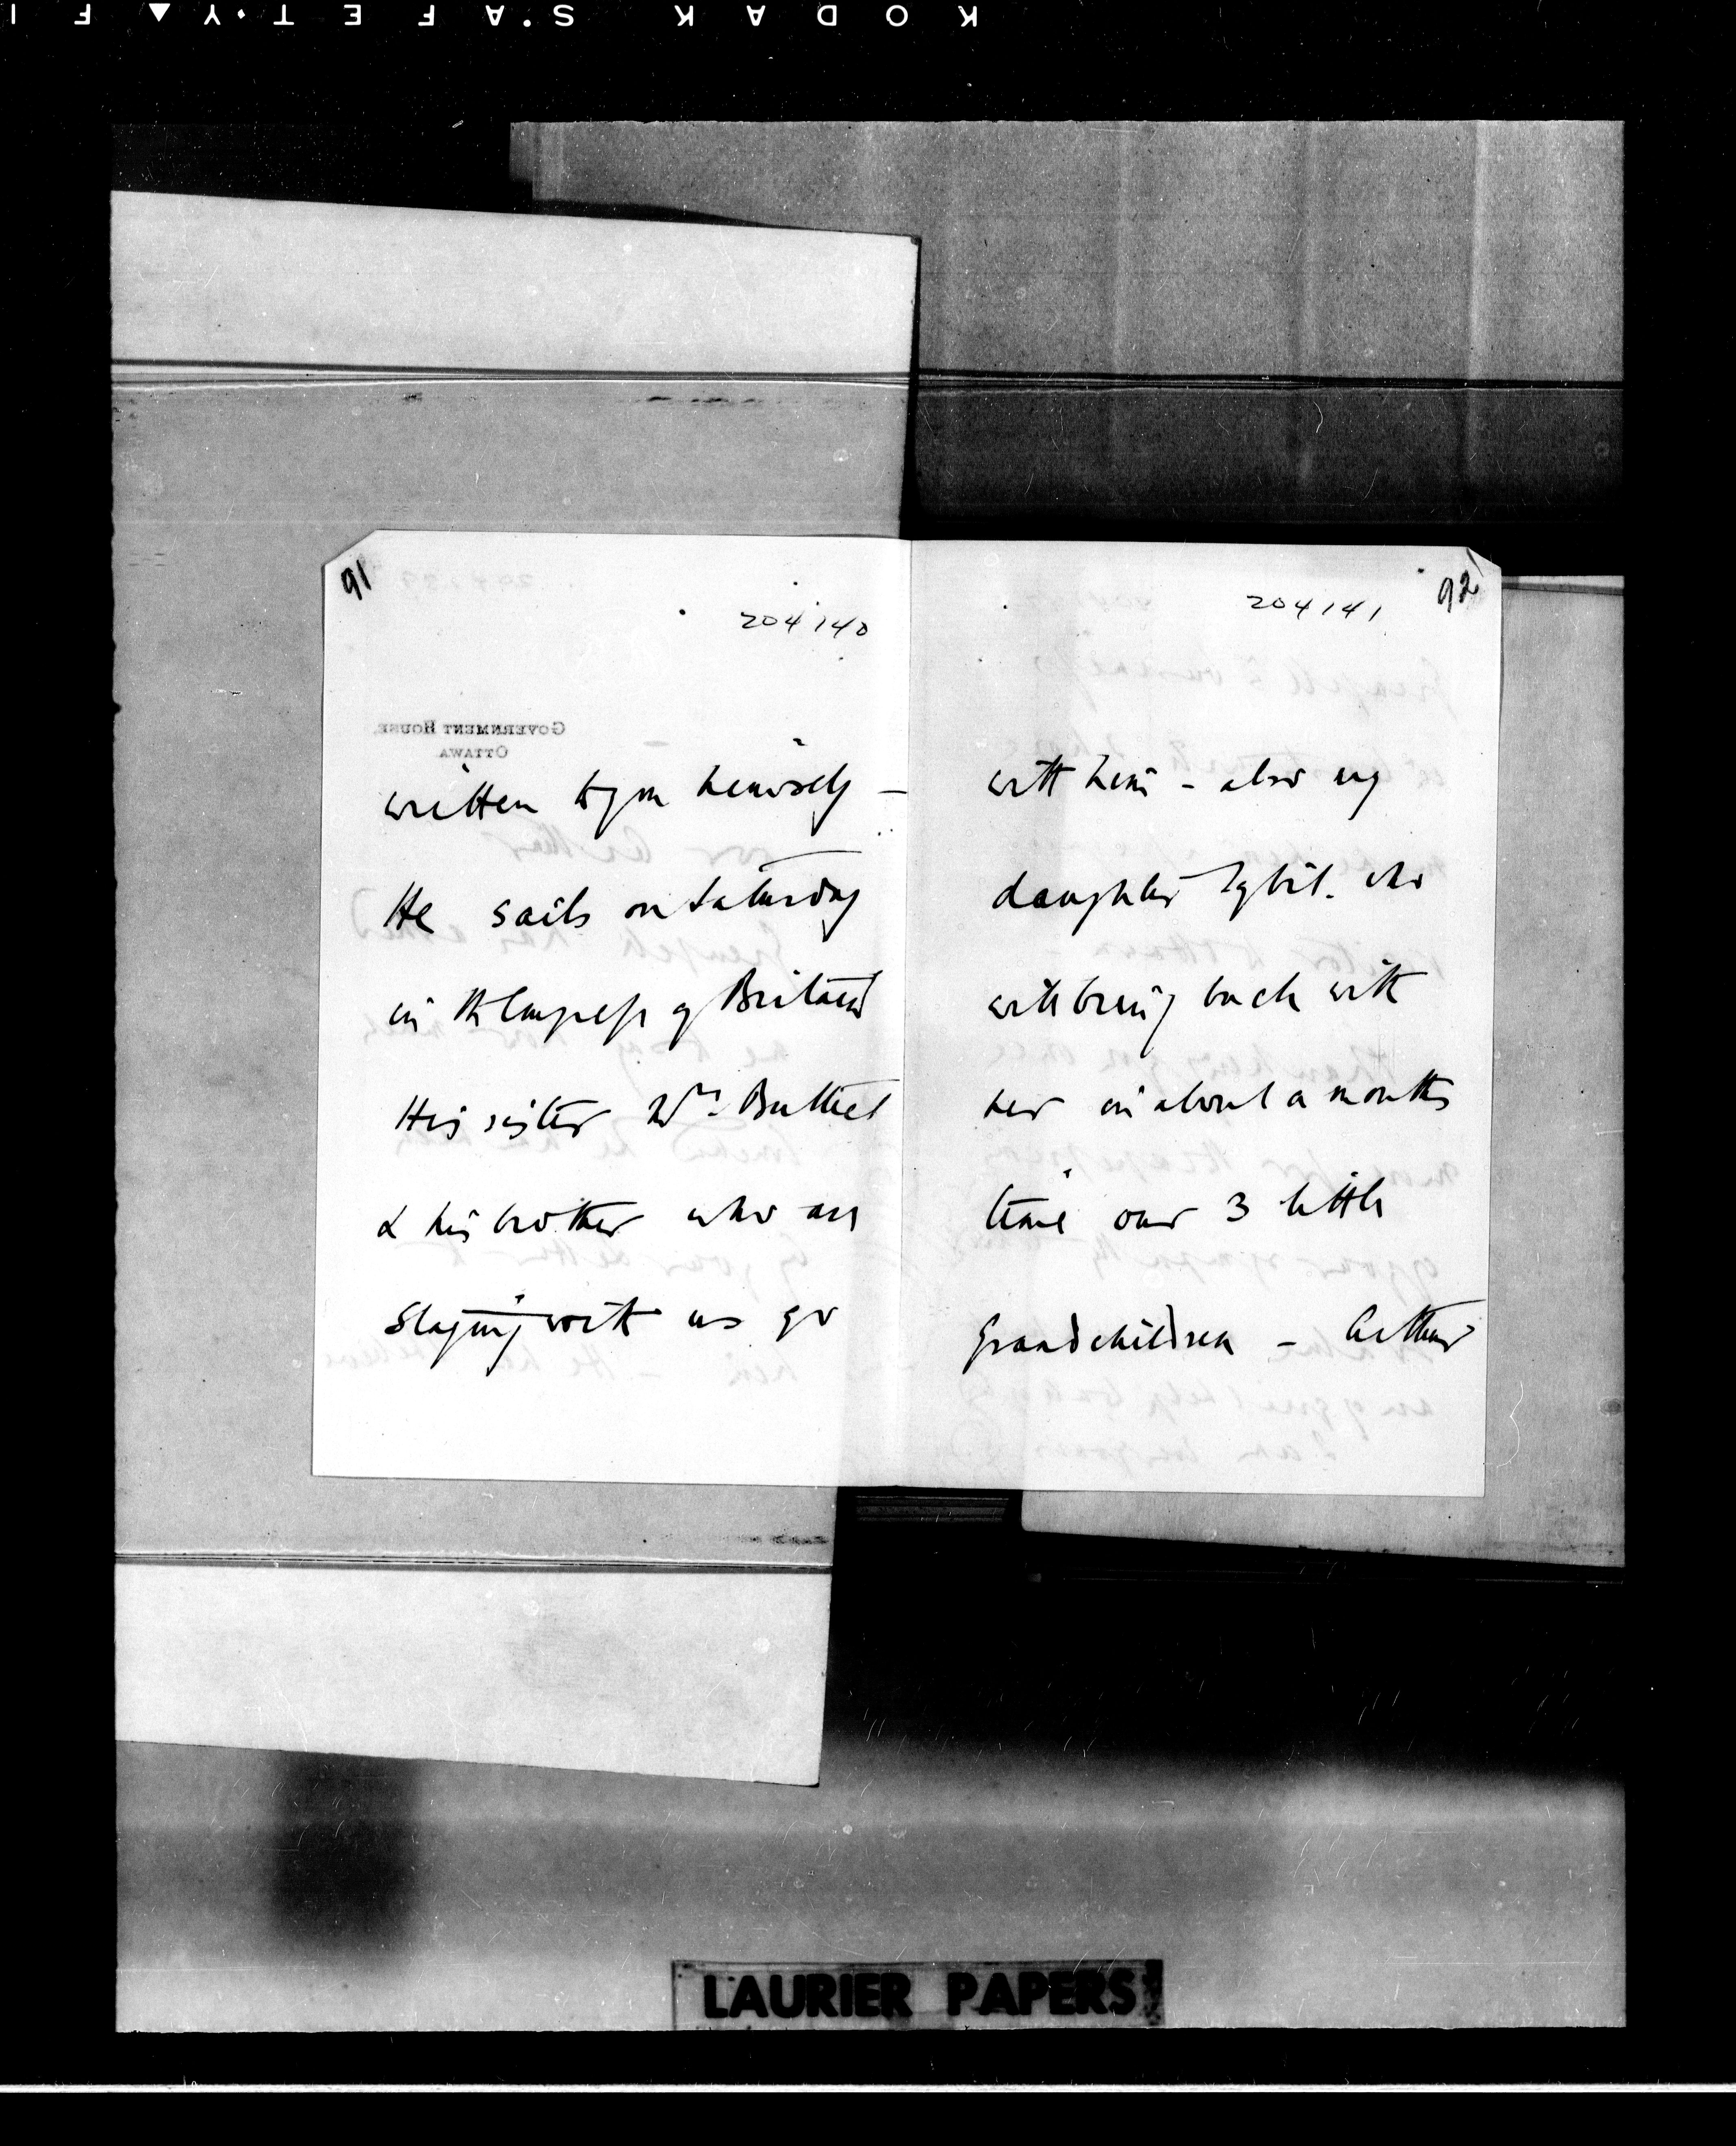 KODAK SAFETY FI
91
204140
GOVERNMENT HOUSE
OTTAWA
written to you himself —
He sails on Saturday
in the Empress of Britain
His sister Mrs. Bulteel
& his brother who are
staying with us go
92
204141
with him - also my
daughter Sybil. who
will bring back with
her in about a months
time our 3 little
Grandchildren - Arthur
LAURIER PAPERS